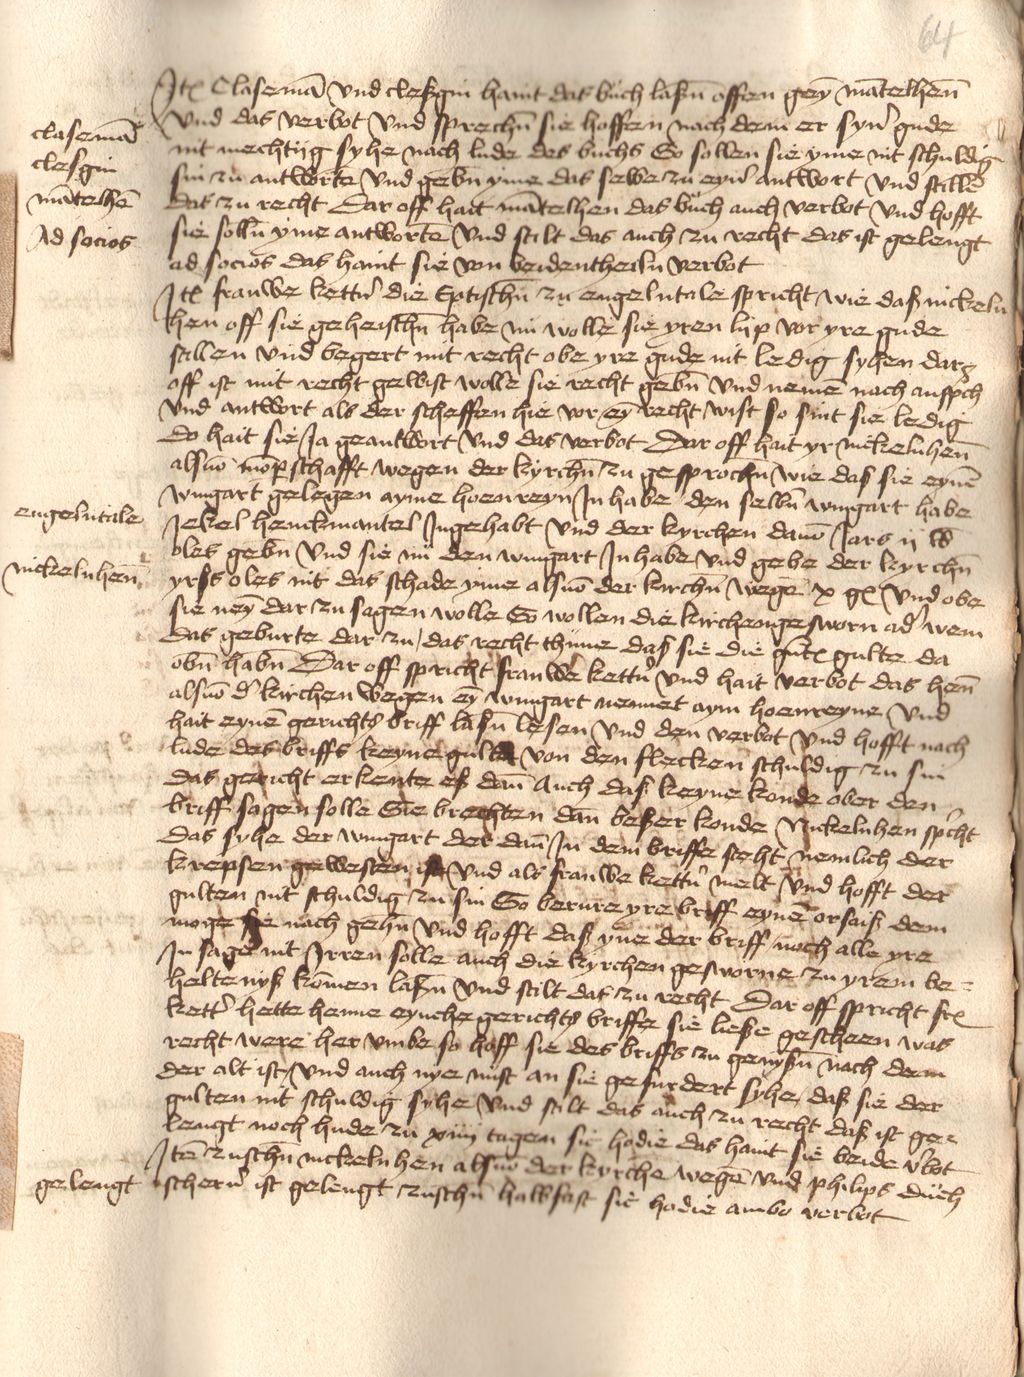 64
Jtem Clasemā vnd clesgin haint das buch laſsn offen gey̅ mātelhen̅
clasemā
clesgin
mātelhē
Ad socios
vnd das verbot vnd sprechn̄ sie hoffen nach dem er syn̕ gude
nit mechtiig syhe nach lude des buchs So sollen sie yme nit schuldig
sin zu antworte̅ vnd gebn̄ yme das sewe zu eyn̕ antwort vnd stille̅
das zu recht Dar off hait mātelhen das buch auch verbot vnd hofft
sie solln̄ yme antworte̅ vnd stilt das auch zu recht das ist gelengt
ad socios das haint sie von beidentheiln verbot
Jtem frauwe kettn̕ die Eptischn̄ zu engelntale spricht wie daß nickeln
hen off sie geheischn̄ habe nu wolle sie yren lijp vor yre gude
stillen vnd begert mit recht obe yre gude nit ledig syhen dar
off ist mit recht gewist wolle sie recht gebn̄ vnd neme̅ nach ansp̕ch
vnd antwort als der scheffen hie vor ey̅ recht wist so sint sie ledig
Do hait sie Ja geantwort vnd das verbot Dar off hait yr nickelnhen̅
alsuō momp̄schafft wegen der kyrchn̄ zu gesprochn̄ wie das sie eyne̅
wingart gelegen ayme hoenreyn Jnhabe den selbn̄ wingart habe
engelntale
nickelnhen̅
Jekel henckmantel Jngehabt vnd der kyrchen dauō Jars ij
oles gebn̄ vnd sie nu den wingart Jnhabe vnd gebe der kyrchn̄
yrſs oles nit das schade yme alsuō der kirchn̄ wege̅ x gl vnd obe
sie ney̅ dar zu sagen wolle So wollen die kirchengesworn ad̕ wem
das geburte dar zu / das recht thune daß sie die gulte da
obn̄ habn̄ Dar off spricht frauwe kettn̕ vnd hait verbot das hen̅
alsuō d̕ kirchen wegen ey̅ wingart nennet aym hoenreyne vnd
hait eyne̅ gerichts briff laſsn̄ lesen vnd den verbot vnd hofft nach
lude des briffs keyne gulte von den flecken schuldig zu sin
das gericht erkente eß dan̅ Auch daß keyne konde ober den
briff sagen solle Sie brechten dan̅ beßer konde Nickelnhen sp̕cht
das syhe der wingart der dan̅ Jn dem briffe steht nemlich der
krepsen gewesten ist vnd als frauwe kettn̕ melt vnd hofft der
gulten nit schuldig zu sin So berure yre briff eyne̅ orsaiß dem
moge sie nach gehn vnd hofft daß yne der briff noch alle yre
Jn sage nit Jrren solle auch die kyrchen gesworne zu yrem be=
heltenyß kōmen laſsn̄ vnd stilt das zu recht Dar off spricht fr
kett̕ hette henne eynche gerichts briffe sie ließe gescheen was
recht were her vmbe so hoff sie des briffs zu genyßn̄ nach dem
der alt ist vnd auch nye nust an sie gefurdert syhe, daß sie der
gulten nit schuldig syhe vnd stilt das auch zu recht daß ist ge=
lengt noch hude zu xiiij tagen sic hodie das haint sie beide v̕bot
gelengt
Jtem zuschn̄ nickelnhen alsuō der kyrche wege̅ vnd philips duch
schern̕ ist gelengt zuschn̄ halbfast sic hodie ambo verbot